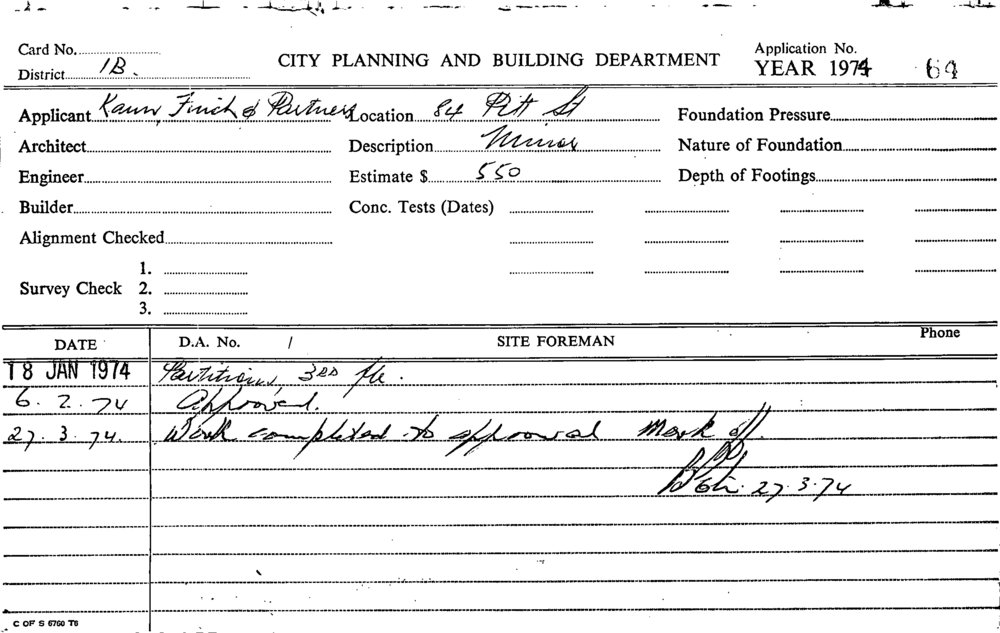 Card No. CITY PLANNING AND BUILDING DEPARTMENT Application No.
District 1B. YEAR 1974 64
Applicant Kann, Finch & Partners Location 84 Pitt St Foundation Pressure
Architect Description Minor Nature of Foundation
Engineer Estimate $ 550 Depth of Footings
Builder Conc. Tests (Dates)
Alignment Checked
1.
Survey Check 2.
3.
DATE D.A. No. / SITE FOREMAN Phone
18 JAN 1974 Partitions, 3RD flr.
6. 2. 74 Approved.
27. 3. 74. Work completed to approval Mark off.
27.3.74
C OF S 6760 T6